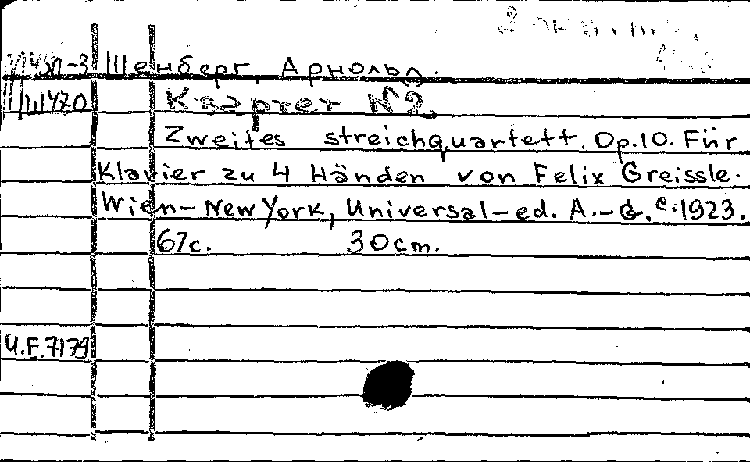 Шенберг, Арнольд.
Ш470 Квартет №2.
Zweites streichquartett. Op.10. Für
Klavier zu 4 Händen von Felix Greissle.
Wien-New York, Universal-ed. A.-G. c.1923.
67с. 30cm.
U.E.7179